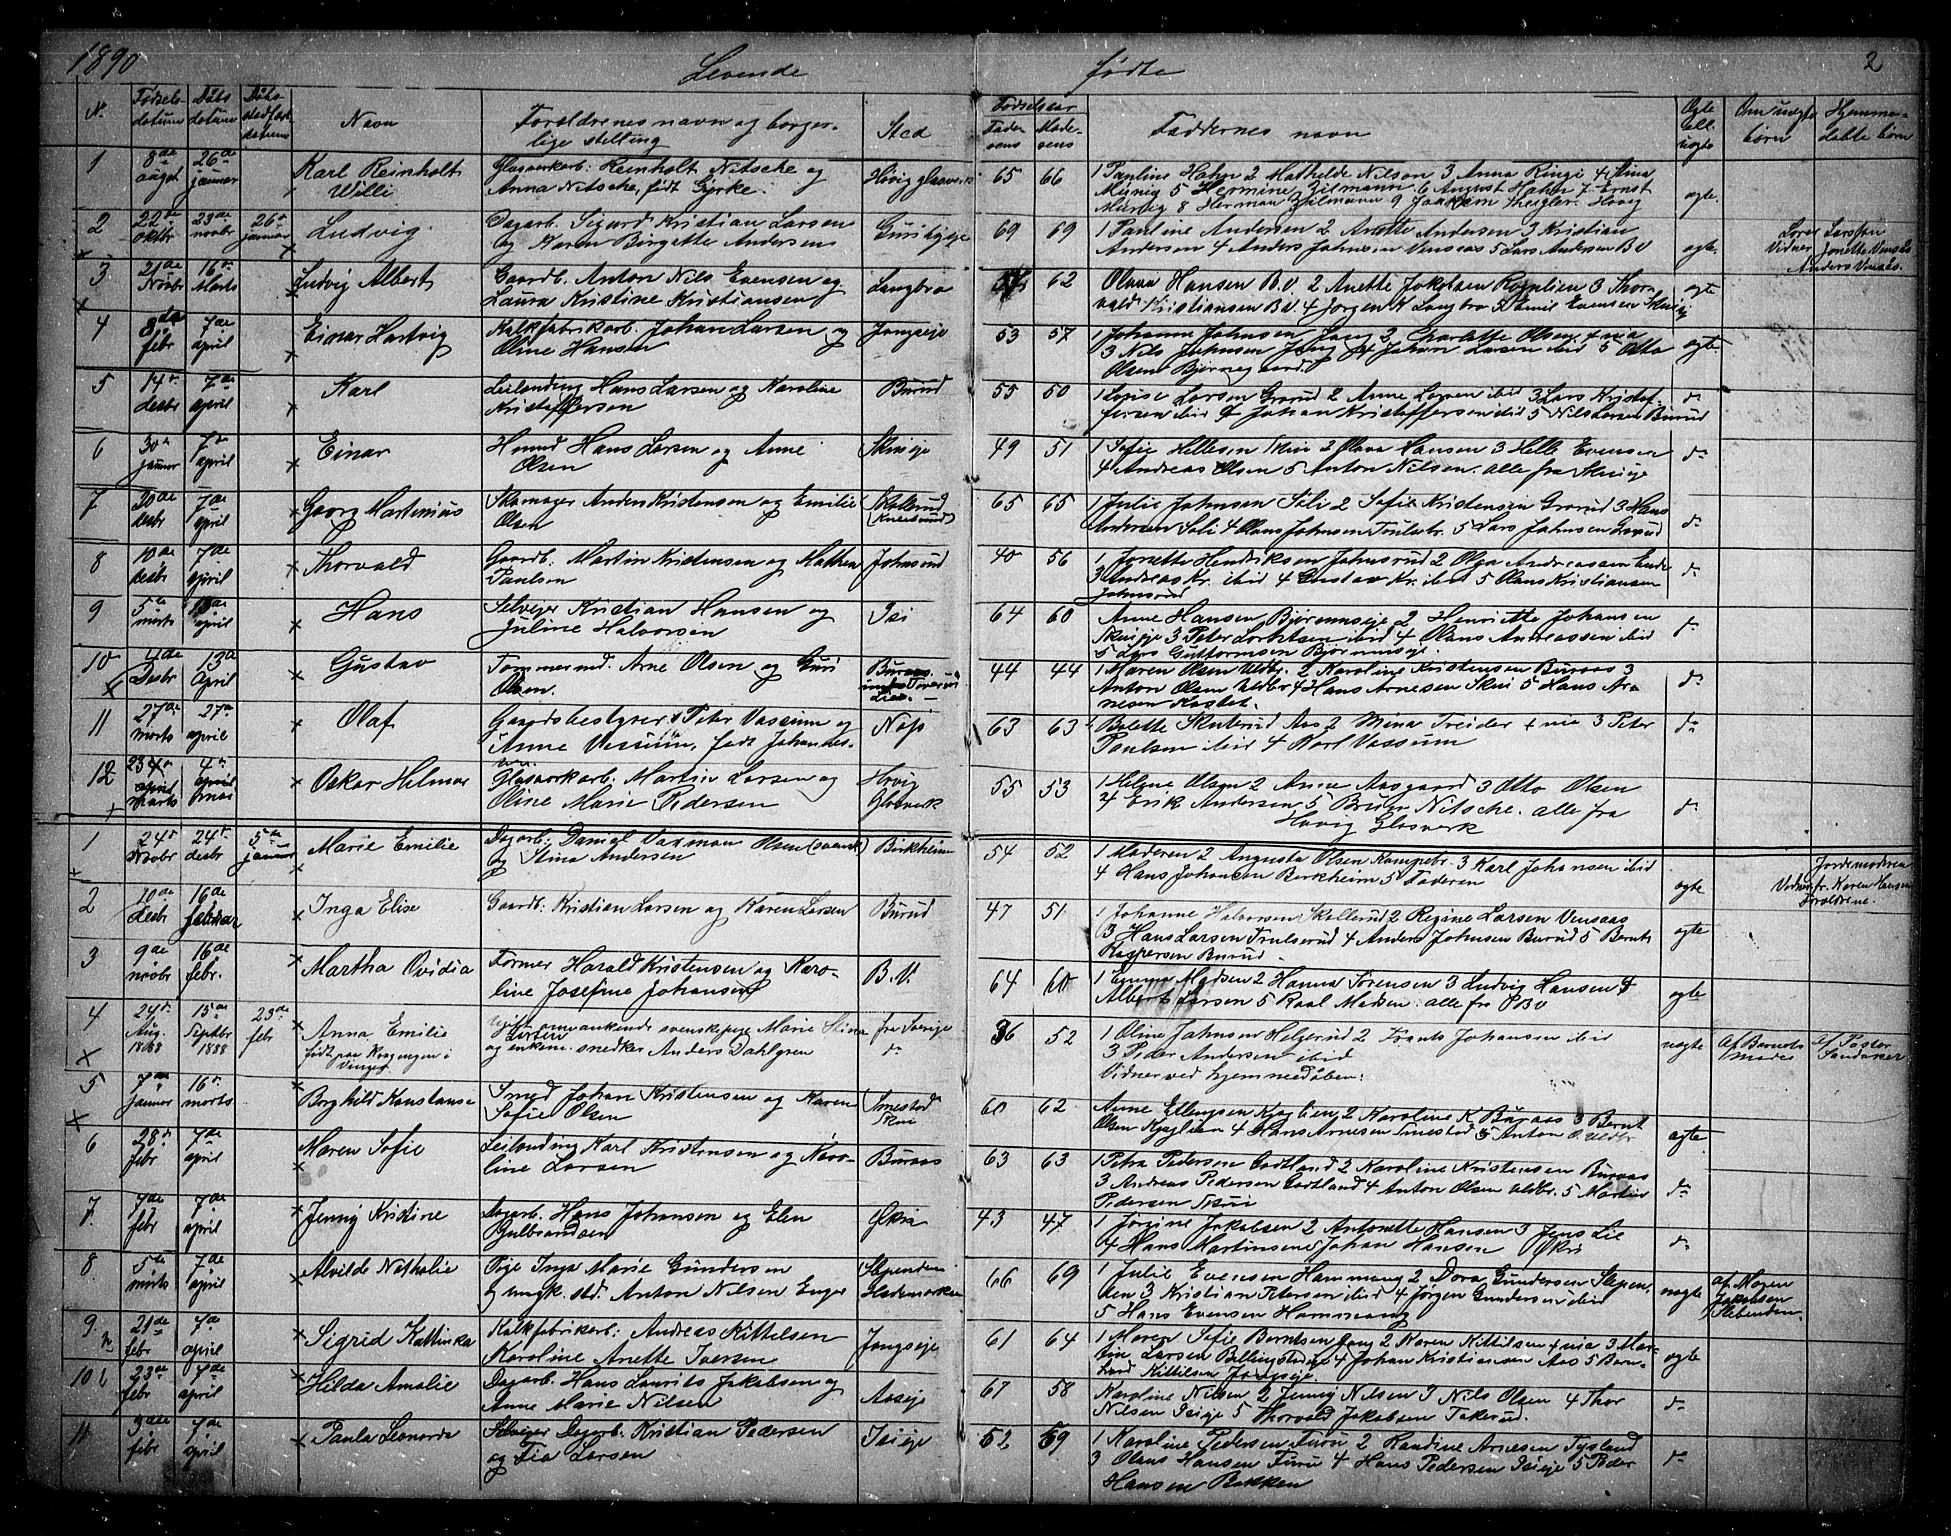 1890 Levende fødte 2
No Fødselsdatum Dåbsdatum Dåbsstadfæst.datum Navn Forældrenes navn og borgerlige stilling Sted Fødselsaar Faderens Moderens Faddernes navn Ægte ell. uægte Om uægte børn Hjemmedøbte børn
1 8de august 26de januar Karl Reinholt Willi Glasværkarb. Reinholt Nitsche og
Anna Nitsche, født Gjerke. Høvig glasværk 65 66 1 Pauline Hahn 2 Mathilde Nilson 3 Anna Ringe 4 Stina
Mürig 5 Hermine Zilmann 6 August Hahn 7 Ernst
Mürig 8 Herman Zilmann 9 Høvig ægte.
2 22de oktbr 23de novbr 26de januar Ludvig Dagarb. Sigurd Kristian Larsen
og Karen Birgitte Andersen 69 69 1 Pauline Andersen 2 Anette Andersen 3 Kristian
Andersen 4 Anders Johnsen Vensaas 5 Lars Andersen B.V ægte.
Lærer Larsson
Vidner Jonette Vensaas
Anders Vensås.
3 21de Novbr 16de Marts Ludvig Albert Gaardb. Anton Nils Evensen og
Laura Kristine Kristiansen Langbro 62 Olava Hansen B.V. 2 Anette Jakobsen Rognlien 3 Thor-
vald Kristiansen B.V. 4 Jørgen K Langbro 5 Emil Evensen ægte
4 8de febr 7de april Einar Hartvig Kalkfabrikarb. Johan Larsen og
Oline Hansen Jongseje 53 57 1 Johanne Johnsen Jong 2 Charlotte Olsen
3 Nils Johnsen Jong 4 Johan Larsen ibid 5 Otto
Olsen Bjørnegaard ægte.
5 14de desbr 7de april Karl Leilænding Hans Larsen og Karoline
Kristoffersen Burud 55 50 1 Lovise Larsen Grorud 2 Anne Larsen ibid 3 Lars Kristof-
fersen ibid 4 Johan Kristoffersen ibid 5 Nils Larsen Burud do
6 30de januar 7de april Einar Hmnd Hans Larsen og Anne
Olsen Skuieje 49 51 1 Sofie Hellesen Skui 2 Olava Hansen 3 Helle Evensen
4 Andreas Olsen 5 Anton Nilsen. alle fra Skuieje do
7 20de desbr 7de april Georg Martinius Skomager Anders Kristensen og Emilie
Olsen Skollerud 65 65 1 Julie Johnsen Søli 2 Sofie Kristensen Grorud 3 Hans
Andersen Søli 4 Olaus Johnsen 5 Lars Johnsen Grorud do
8 10de desbr 7de april Thorvald Gaardb. Martin Kristensen og Mathea
Paulsen Johnsrud 40 56 1 Jonette Hendriksen Johnsrud 2 Olga Andreassen Ende
3 Andreas Kr. ibid 4 Gustav Kr. ibid 5 Olaus Kristiansen
Johnsrud do
9 5te marts 13de april Hans Selvejer Kristian Hansen og
Juline Halvorsen Isi 64 60 Anne Hansen Bjørumseje 2 Henriette Johansen
Skuieje 3 Peter ibid 4 Olaus Andreassen ibid
5 Lars Guttormsen Bjørumseje. do
10 4de Desbr 13de April Gustav Tømmermd. Arne Olsen og Guri
Olsen. Buraas 44 44 1 Maren Olsen Vældbr. 2 Karoline Kristensen Buraas 3
Anton Olsen Vældbr 4 Hans Arnesen Skui 5 Hans Ar-
nesen do
11 27de marts 27de april Olaf Gaardsbestyrer Peter Vassum og
Anne Vassum, født Johannes-
sen Nøss 63 63 1 Berthe Skuterud Aas 2 Mina Treider 3 Peter
Paulsen ibid 4 Karl Vassum do
12 23de marts 4de Oskar Helmar Glasværkarb. Martin Larsen og
Oline Marie Pedersen Høvig Glasværk 55 53 1 Helene Olsen 2 Anna Aasgaard 3 Otto Olsen
4 Erik Andersen 5 Bruno Nitsche. alle fra
Høvig Glasværk do
1 24de Novbr 24de desbr 5te januar Marie Emilie Dagarb. Daniel Vaxman Olsen (svensk)
og Stina Andersen Birkheim 54 52 1 Moderen 2 Augusta Olsen Kampebr. 3 Karl Johnsen ibid
4 Hans Johansen Berkheim 5 Faderen ægte
Jordemoderen
Vidner fr. Karen Hansen
Forældrene.
2 10de desbr 16de februar Inga Elise Gaardb. Kristian Larsen og Karen Larsen Burud 47 51 1 Johanne Halvorsen Skollerud 2 Regine Larsen Vensaas
3 Hans Larsen Trulserud 4 Anders Johnsen Burud 5 Bernt
Kaspersen Burud ægte
3 9de novbr 16de febr. Martha Ovidia Former Harald Kristensen og Karo-
line Josefine Johansen B.V. 64 60 1 Emma Madsen 2 Hanna Sørensen 3 Ludvig Hansen 4
Albert Larsen 5 Raal Madsen. alle fra B.V ægte
4 24de Aug. 1888 15de Septbr 1888 23de febr Anna Emilie
født paa Kragengen i
Vinger omvankende svenskepige Marie Stina
og enkem. snedker Anders Dahlgren fra Sverige do 36 52 1 Oline Johnsen Helgerud 2 Frants Johansen ibid
3 Peder Andersen ibid
Vidner ved hjemmedåben: uægte Af Barnets Moder Af Pastor Sandaker
5 7de januar 16de marts Borghild Konstanse Smed Johan Kristensen og Karen
Sofie Olsen Smestad Skui 60 62 Anne Ellingsen Kjaglien 2 Karoline K. Buraas 3 Bernt
Olsen Kjaglien 4 Hans Arnesen Smestad 5 Anton O. Vældbr ægte
6 28de febr 7de april Maren Sofie Leilænding Karl Kristensen og Karo-
line Larsen Buraas 63 63 1 Petra Pedersen Godtland 2 Karoline Kristensen Buraas
3 Andreas Pedersen Godtland 4 Anton Olsen Vældbr. 5 Martin
Pedersen Skui do
7 7de febr 7de april Jenny Kristine Dagarb. Hans Johansen og Elen
Gulbrandsen Økri 43 47 1 Jørgine Jakobsen 2 Antonette Hansen 3 Jens Lie
4 Hans Martinsen 5 Johan Hansen Økri do
8 5te marts 7de april Alvilde Nathalie Pige Inga Marie Gundersen
og ungk. sold. Anton Nilsen Enger Slependen
Hedemarken 66 69 1 Julie Evensen Hammang 2 Dora Gundersen Slepen-
den 3 Kristian Petersen ibid 4 Jørgen Gundersen ibid
5 Hans Evensen Hammang uægte af Mogen
Jakobsen
Slebenden
9 21de febr 7de april Sigrid Kattinka Kalkfabrikarb. Andreas Kittelsen
Karoline Anette Iversen Jongseje 61 64 1 Maren Sofie Berntsen Jong 2 Karen Kittilsen 3 Mar-
tin Larsen Billingstadeje 4 Johan Kristiansen Aas 5 Bern-
hard Kittilsen Jongseje. ægte
10 23de febr 7de april Hilda Amalie Dagarb. Hans Laurits Jakobsen og
Anne Marie Nilsen Aaseje 67 58 Karoline Nilsen 2 Jenny Nilsen 3 Nils Olsen 4 Thor
Nilsen Isieje 5 Thorvald Jakobsen Takerud. do
11 3de febr 7de april Paula Leonarda Selvejer Dagarb. Kristian Pedersen
og Fia Larsen Isieje 52 59 1 Karoline Pedersen Furu 2 Randine Arnesen Tysland
3 Olaus Hansen Furu 4 Hans Pedersen Isieje 5 Peder
Hansen Bakken do